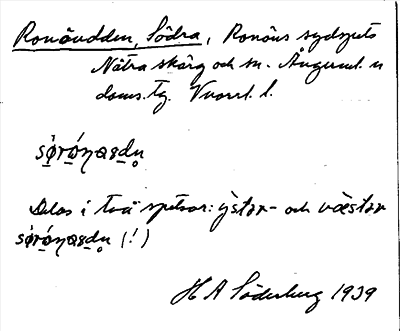 Ronöudden, Södra, Ronöns sydspets
Nätra skärg och sn. Ångerml. n
doms. tg. Vnorrl. l.
sǿrǿnasdn
Delas i två spetsar: ÿstər- och västər
sǿrǿnasdn (!)
H A Söderberg 1939